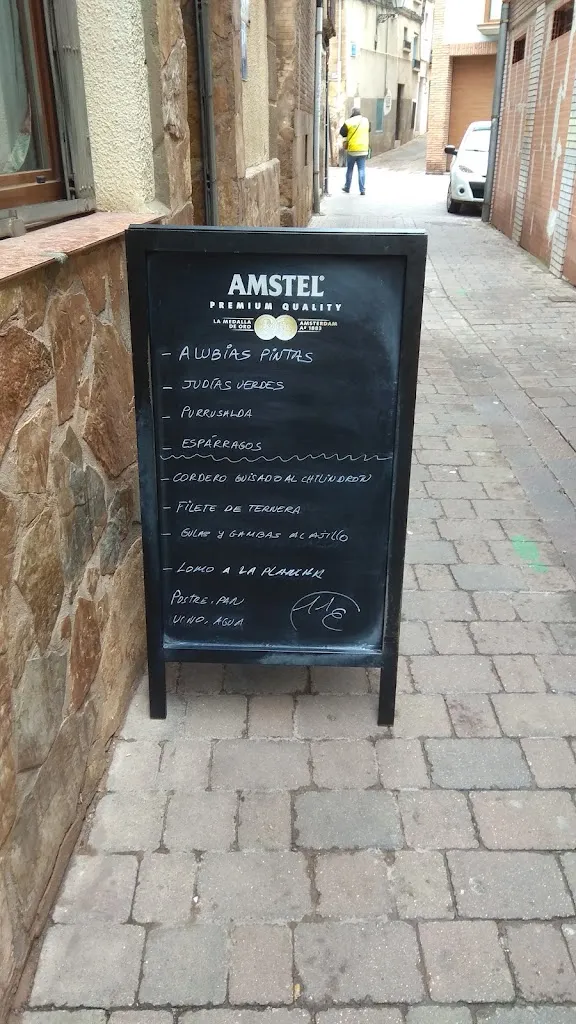 AMSTEL®
PREMIUM QUALITY
LA MEDALLA DE ORO
AMSTERDAM Aº 1883
- ALUBIAS PINTAS
- JUDÍAS VERDES
- PURRUSALDA
- ESPÁRRAGOS
- CORDERO GUISADO AL CHILINDRÓN
- FILETE DE TERNERA
- GULAS Y GAMBAS AL AJILLO
- LOMO A LA PLANCHA
POSTRE, PAN
VINO, AGUA
11€